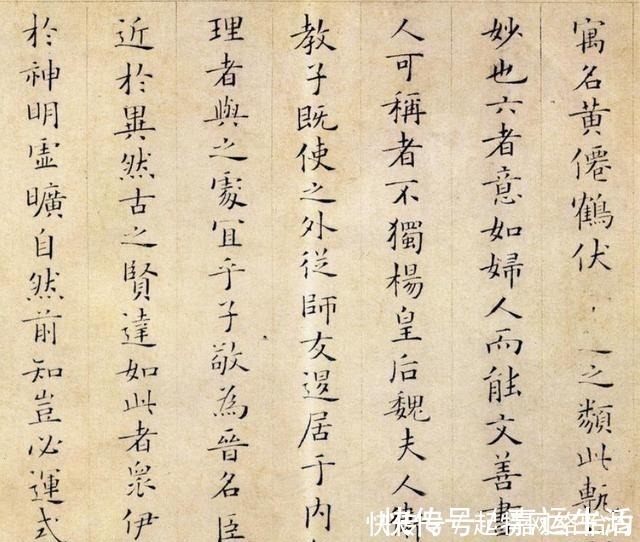 寓名黄僊鶴伏之類此
妙也六者意如婦人而能文善畫
人可稱者不獨楊皇后魏夫人
教子既使之外従師友退居于内
理者與之處宜乎子敬為晉名臣
近於異然古之賢達如此者衆伊
於神明虛曠自然前知豈必運式
快传号